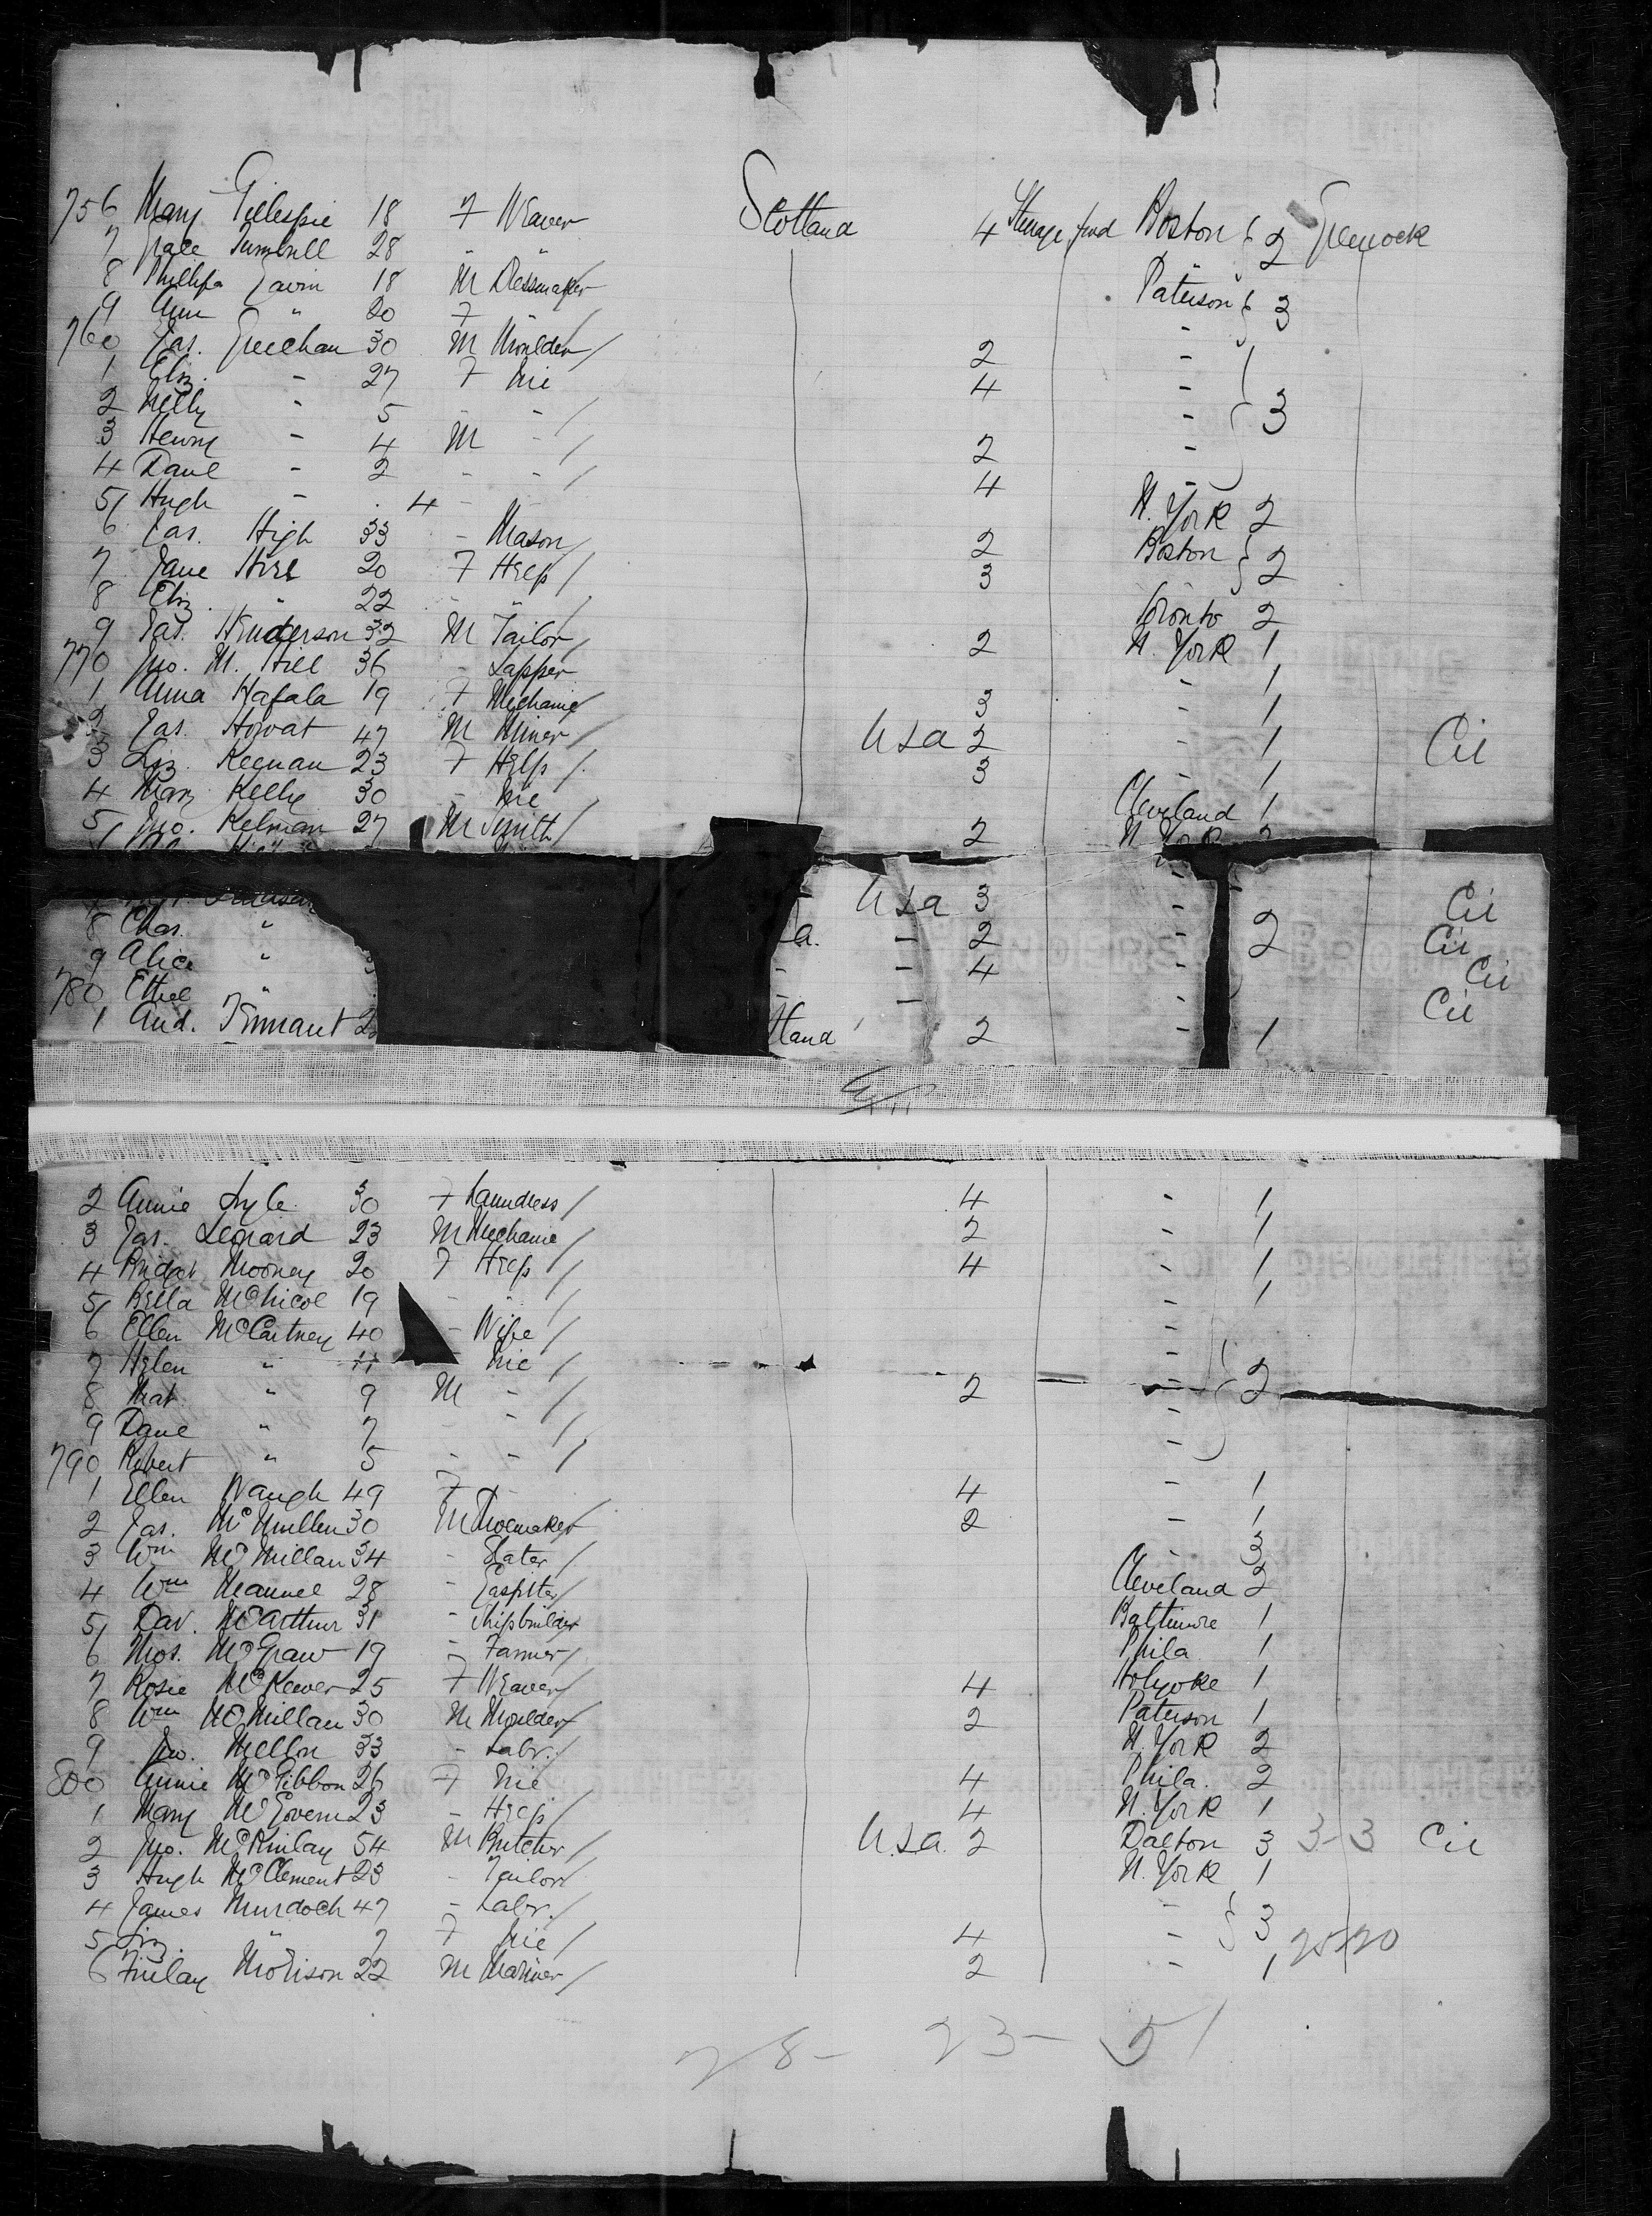 756 Mary Gillespie 18 F Weaver Scotland 4 Steerage fwd Boston 2 Greenock
7 Grace Turnbull 28 " "
8 Phillip Gavin 18 M Dressmaker Paterson 3
9 Ann " 20 F "
760 Jas. Greehan 30 M Moulder 2 -
1 Eliz. - 27 F Nie 4 -
2 Nelly - 5 - - - 3
3 Henry - 4 M - 2 -
4 Danl - 2 - - 4 -
5 Hugh - 4 -
6 Jas. High 33 - Mason 2 N. York 2
7 Jane Hill 20 F Help 3 Boston 2
8 Eliz. " 22 - "
9 Jas. Henderson 32 M Tailor 2 Toronto 2
770 Jno. M. Hill 36 - Lapper N. York 1
1 Anna Hafala 19 F Mechanic 3 - 1
2 Jas. Howat 47 M Miner USA 2 - 1 Cit
3 Liz. Keenan 23 F Help 3 - 1
4 Mary Kelly 30 - Nie - 1
5 Jno. Kelman 27 M Smith 2 Cleveland 1
N. York 2
USA 3 - Cit
8 Chas. " a. - 2 - 2 Cit
9 Alice " - - 4 - Cit
780 Ethel " - - - Cit
1 And. Tennant 2 tland 2 - 1
2 Annie Lyle 30 F Laundress 4 - 1
3 Jas. Leonard 23 M Mechanic 2 - 1
4 Bridget Mooney 20 F Help 4 - 1
5 Bella McNicol 19 - - - 1
6 Ellen McCartney 40 - Wife -
7 Helen " 11 Nie -
8 Mat. " 9 M - 2 - 2
9 Danl " 7 - - -
790 Robert " 5 - - -
1 Ellen Waugh 49 F - 4 - 1
2 Jas. McMullen 30 M Shoemaker 2 - 1
3 Wm McMillan 34 - Slater - 3
4 Wm Mannel 28 - Gasfitter Cleveland 2
5 Dav. McArthur 31 - Shipbuilder Baltimore 1
6 Thos. McGraw 19 - Farmer Phila 1
7 Rosie McKeever 25 F Weaver 4 Holyoke 1
8 Wm McMillan 30 M Moulder 2 Paterson 1
9 Jno. Mellon 33 - Labr. N. York 2
800 Annie McGibbon 26 F Nie 4 Phila. 2
1 Mary McGovern 23 - Help 4 N. York 1
2 Jno. McKinlay 54 M Butcher U.S.A. 2 Dalton 3 3-3 Cit
3 Hugh McClement 23 - Tailor N. York 1
4 James Murdoch 47 - Labr. - 3
5 Liz. " 7 F Nie 4 -
6 Finlay Morison 22 M Mariner 2 - 1 25-20
28- 23- 51